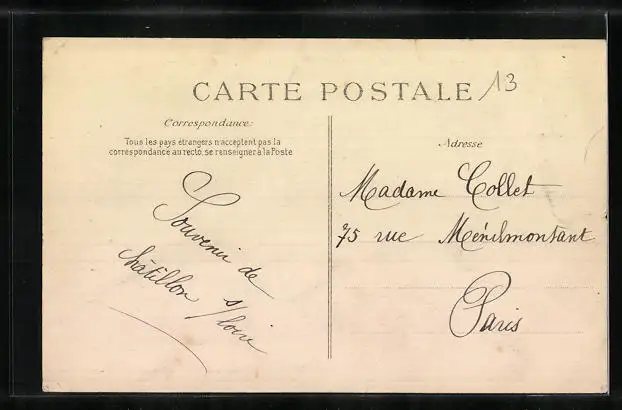 CARTE POSTALE 13
Correspondance:
Tous les pays étrangers n'acceptent pas la
correspondance au recto, se renseigner à la Poste
Souvenir de
Châtillon s/Loire
Adresse
Madame Collet
75 rue Ménilmontant
Paris